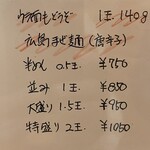 もどうぞ 1玉 140g
広島まぜ麺(唐辛子)
半めん 0.5玉. ¥750
並み 1玉 ¥850
大盛り 1.5玉 ¥950
特盛り 2玉 ¥1050